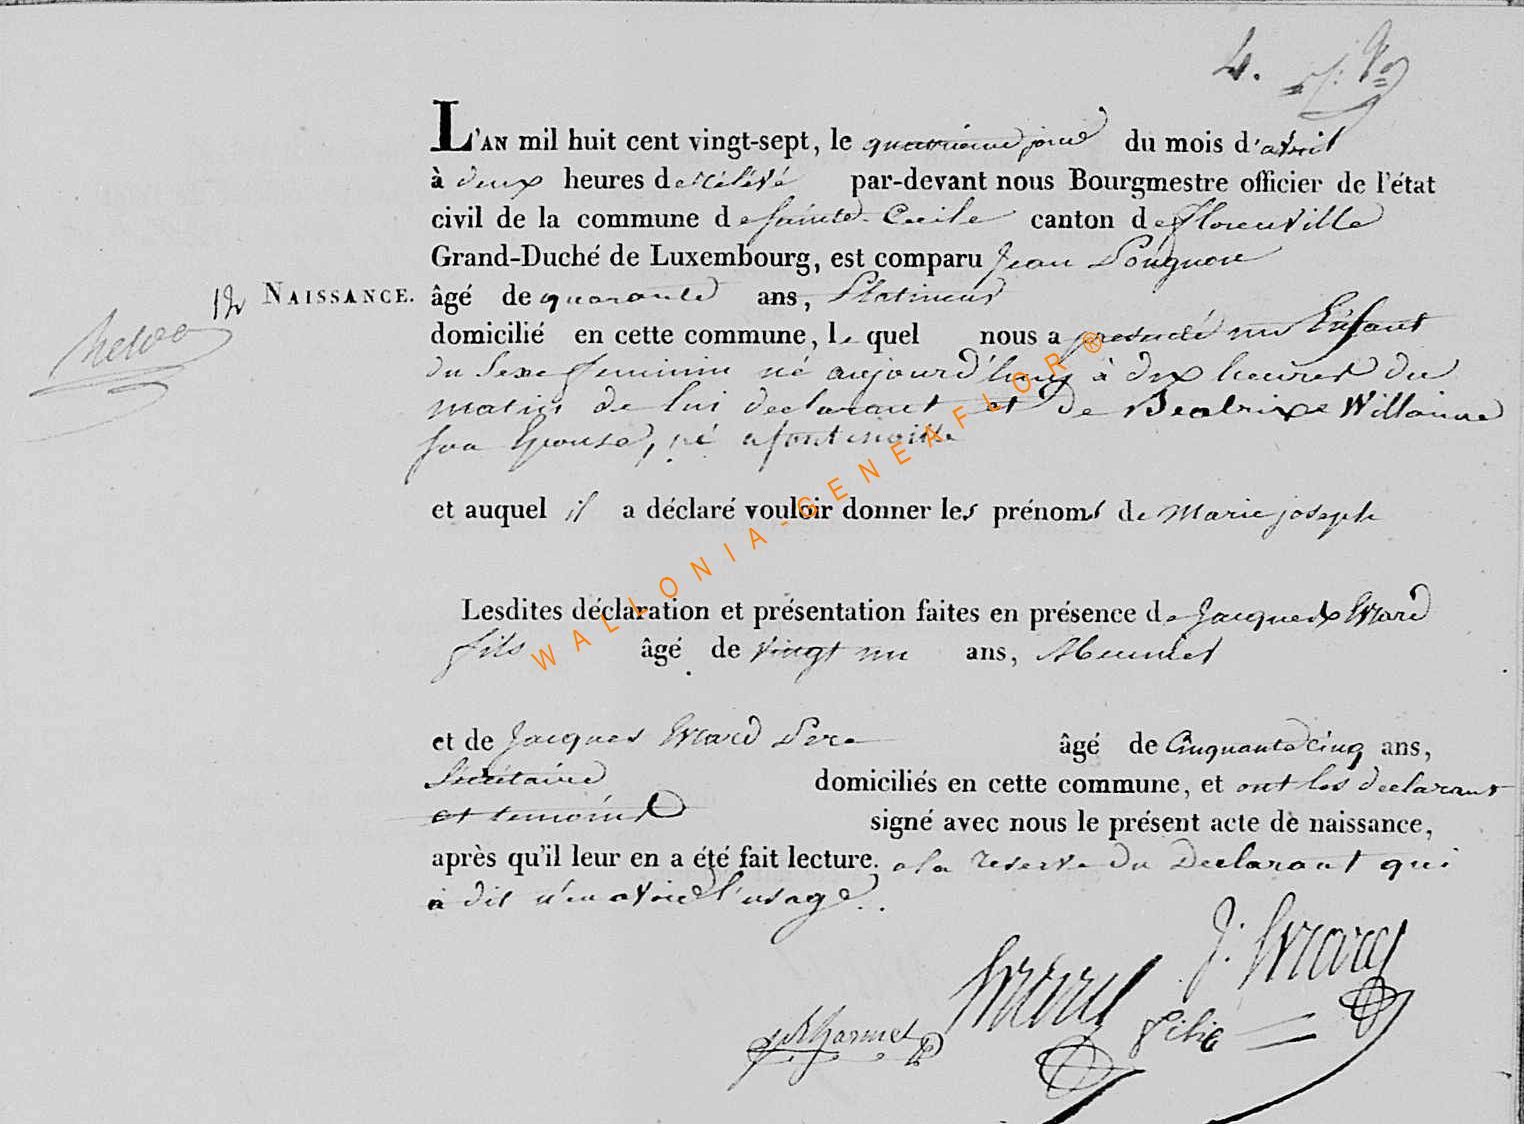 4.
L'AN mil huit cent vingt-sept, le quatrieme jour du mois d'avril
à deux heures de relévé par-devant nous Bourgmestre officier de l'état
civil de la commune de Sainte Cecile canton de florenville
Grand-Duché de Luxembourg, est comparu Jean
12 NAISSANCE. âgé de quarante ans, Platineur
domicilié en cette commune, le quel nous a presenté un Enfant
du Sexe feminin né aujourd'huy à dix heures du
matin de lui declarant et de Beatrixe Willaime
son Epouse, né a fontenoille
et auquel il a déclaré vouloir donner les prénoms de Marie joseph
Lesdites déclaration et présentation faites en présence de Jacques Evrard
fils âgé de vingt un ans, Meunier
et de Jacques Evrard Pere âgé de Cinquante cinq ans,
Secrétaire domiciliés en cette commune, et ont les declarant
et temoins signé avec nous le présent acte de naissance,
après qu'il leur en a été fait lecture. a la reserve du Declarant qui
a dit n'en avoir l'usage.
J. Evrard
Evrard
filie
WALLONIA-GENEAFLOR®